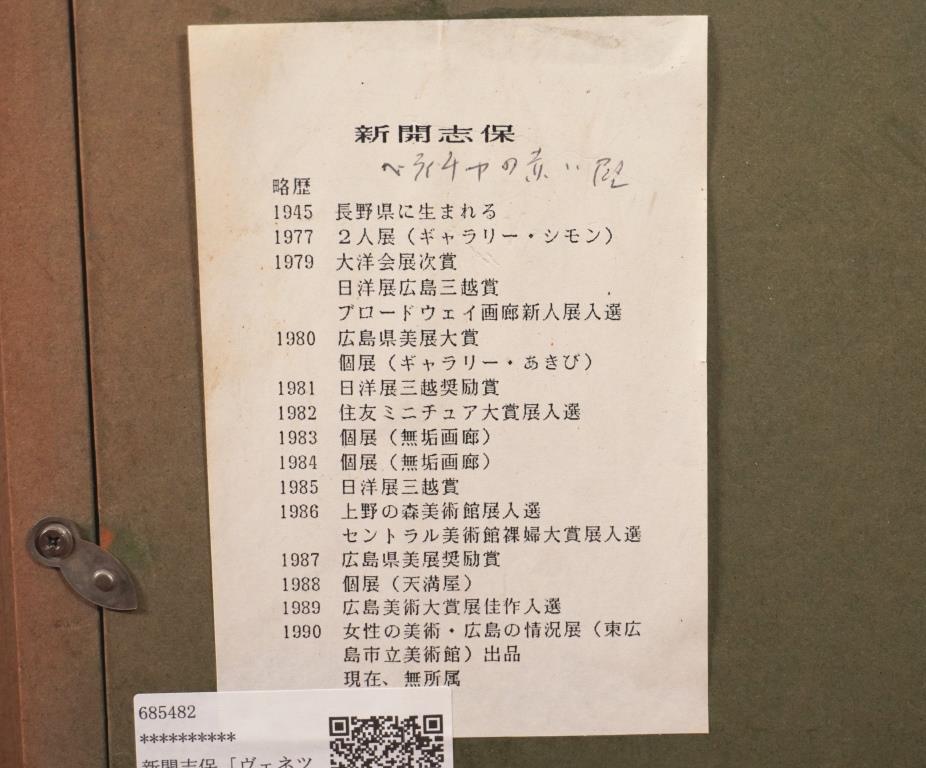 新開志保
略歴
1945 長野県に生まれる
1977 2人展(ギャラリー・シモン)
1979 大洋会展次賞
日洋展広島三越賞
ブロードウェイ画廊新人展入選
1980 広島県美展大賞
個展(ギャラリー・あきび)
1981 日洋展三越奨励賞
1982 住友ミニチュア大賞展入選
1983 個展(無垢画廊)
1984 個展(無垢画廊)
1985 日洋展三越賞
1986 上野の森美術館展入選
セントラル美術館裸婦大賞展入選
1987 広島県美展奨励賞
1988 個展(天満屋)
1989 広島美術大賞展佳作入選
1990 女性の美術・広島の情況展(東広
島市立美術館)出品
現在、無所属
685482
**********
新開志保「ヴェネツ